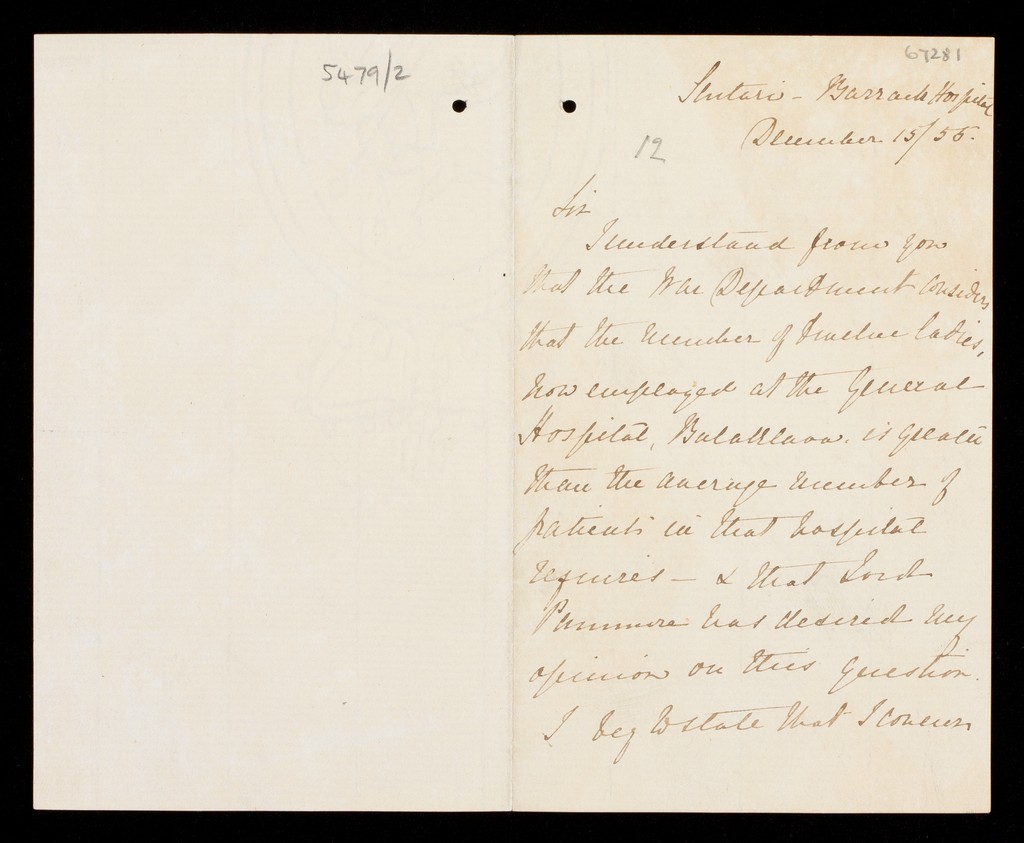 5479/2
67281
Scutari - Barrack Hospital
December 15/55.
12
Sir
I understand from you
that the War Department considers
that the number of twelve ladies,
now employed at the General
Hospital, Balaklava, is greater
than the average number of
patients in that hospital
requires - & that Lord
Panmure has desired my
opinion on this question.
I beg to state that I concur